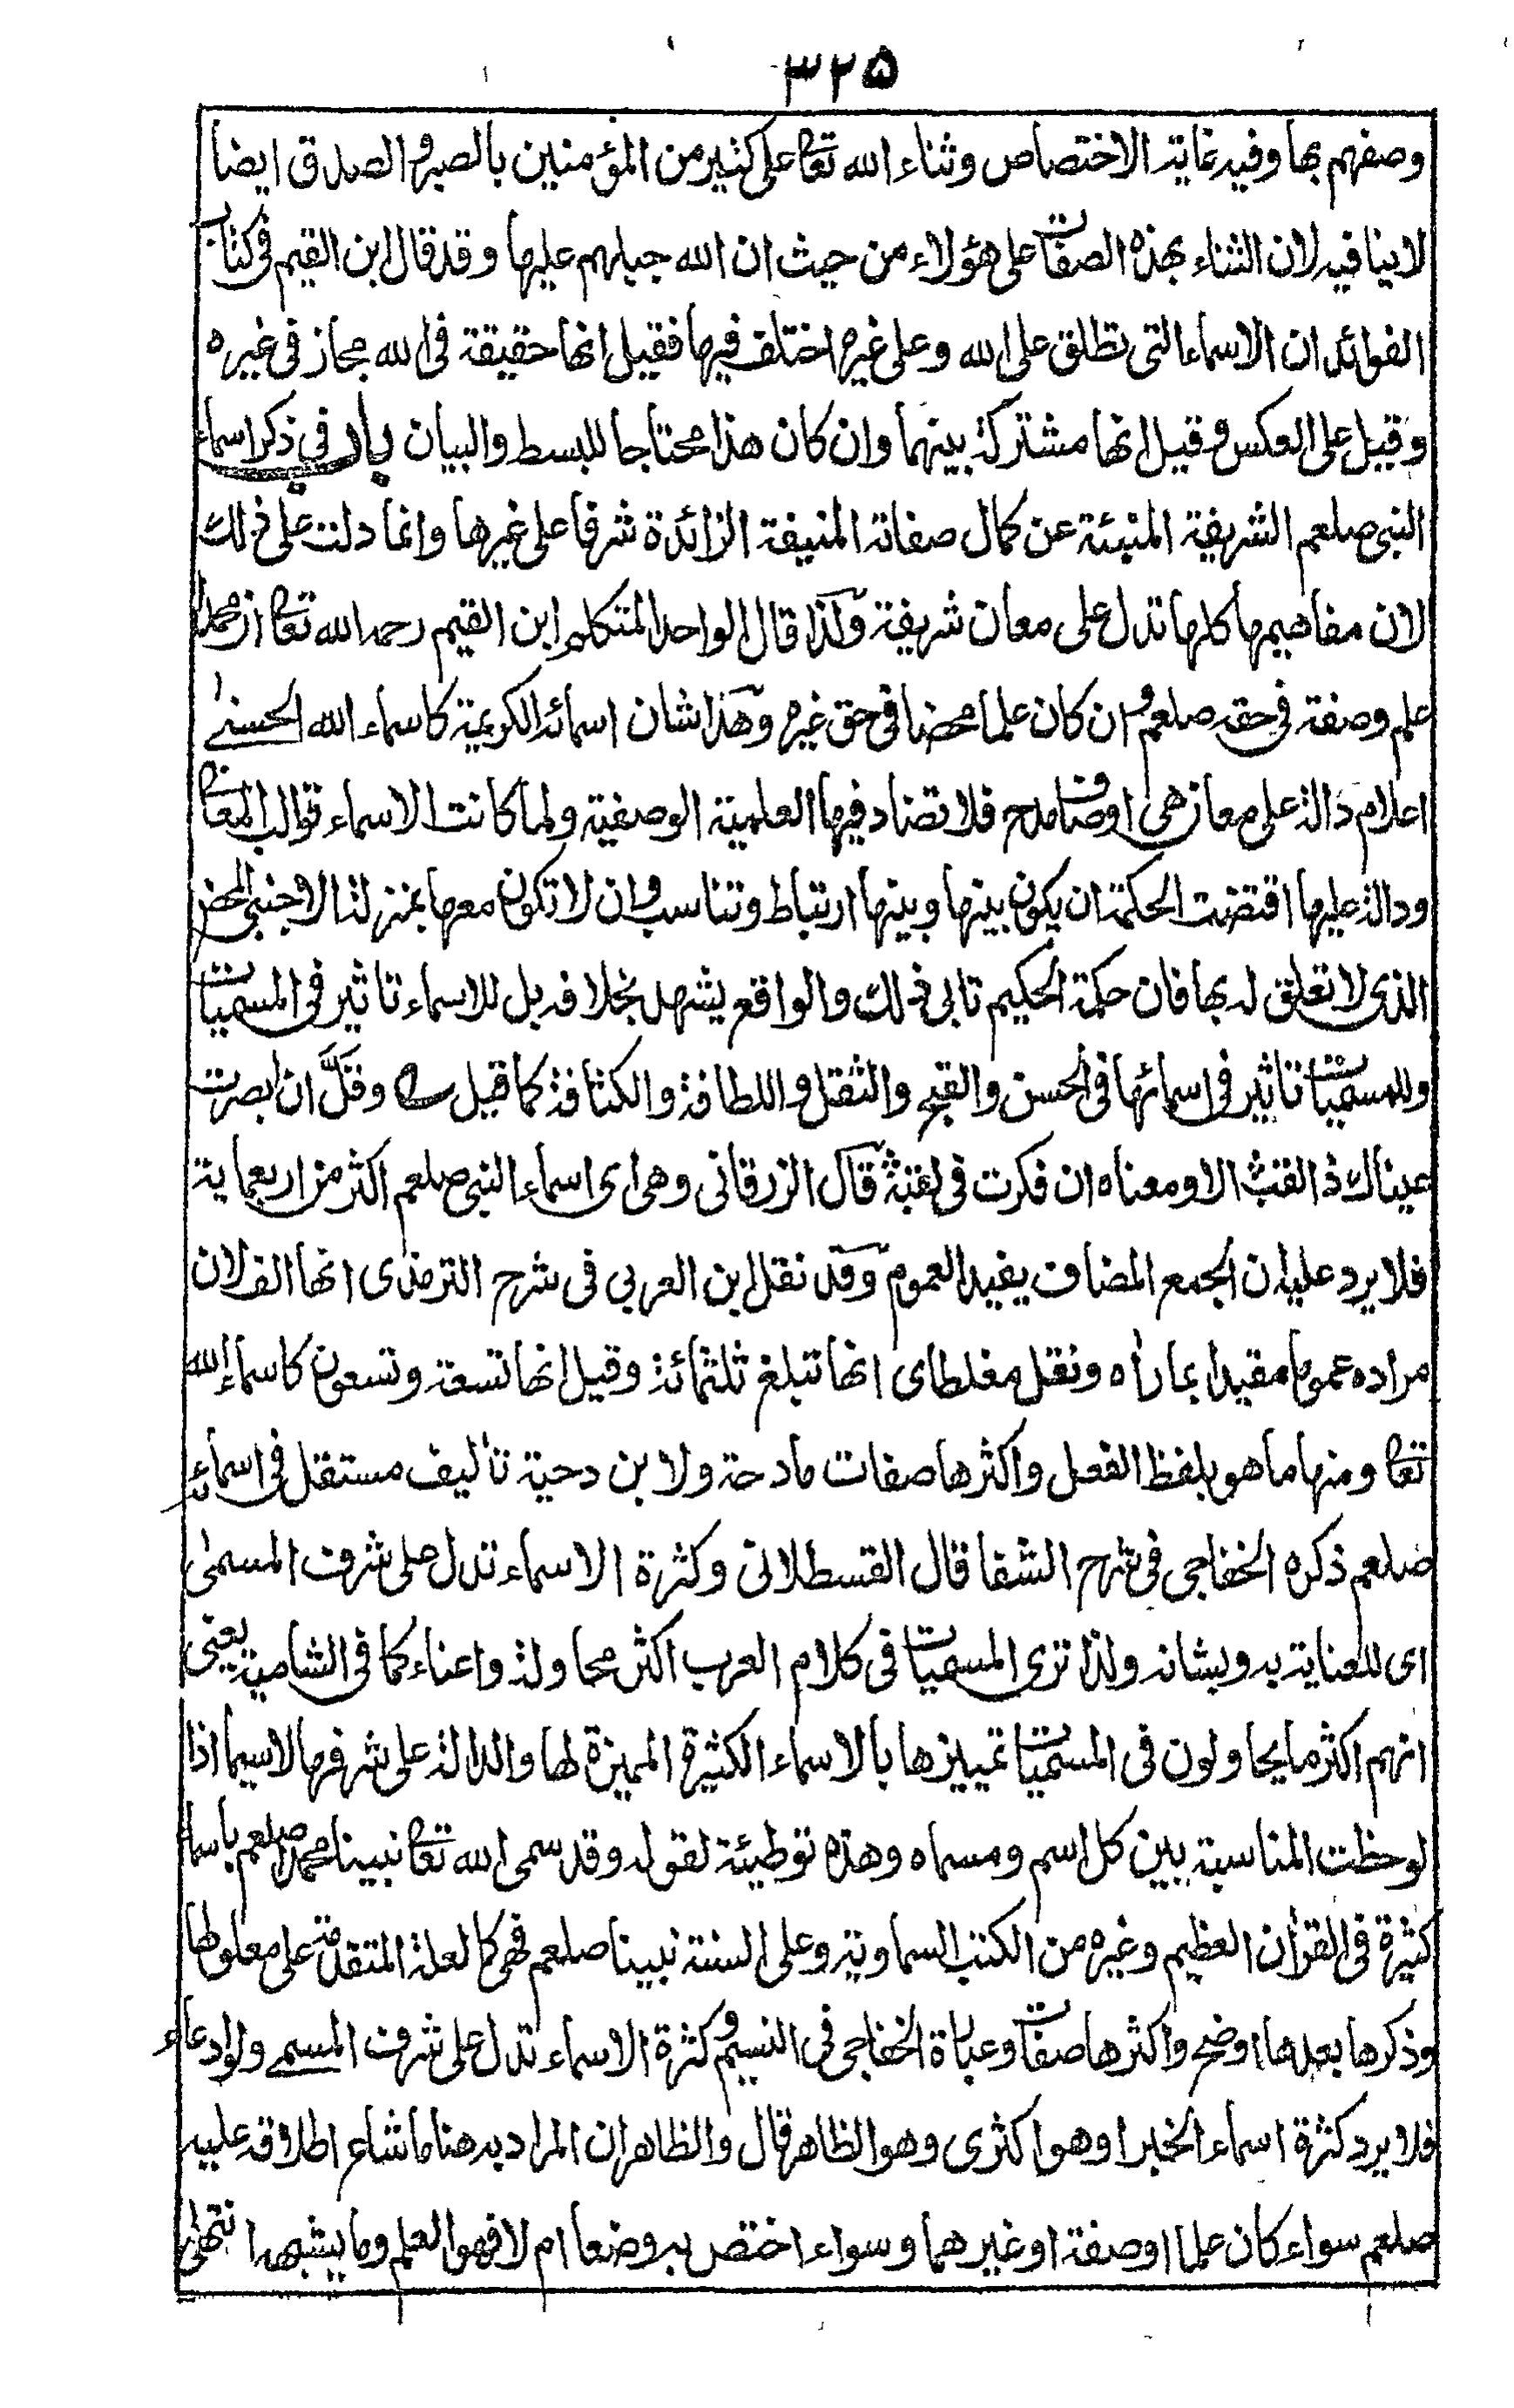 ٣٢٥
وصفهم بها وفيه غاية الاختصاص وثناء الله تعا على كثير من المؤمنين بالصبر والصدق ايضا
لا ينافيه لان الثناء بهذه الصفات على هؤلاء من حيث ان الله جبلهم عليها وقد قال ابن القيم في كتاب
الفوائد ان الاسماء التي تطلق على الله وعلى غيره اختلف فيها فقيل انها حقيقة في الله مجاز في غيره
وقيل على العكس وقيل انها مشتركة بينهما وان كان هذا محتاجا للبسط والبيان باب في ذكر اسماء
النبي صلعم الشريفة المنبئة عن كمال صفاته المنيفة الزائدة شرفا على غيرها وانما دلت على ذلك
لان مفاهيمها كلها تدل على معان شريفة ولذا قال الواحد المتكلم ابن القيم رحمه الله تعا ان محمدا
علم وصفة في حقه صلعم وان كان علما محضا في حق غيره وهذا شان اسمائه الكريمة كاسماء الله الحسنى
اعلام دالة على معان هى اوصاف مدح فلا تضاد فيها العلمية الوصفية ولما كانت الاسماء قوالب المعاني
ودالة عليها اقتضت الحكمة ان يكون بينها وبينها ارتباط وتناسب وان لا تكون معها بمنزلة الاجنبي المحض
الذى لا تعلق له بها فان حكمة الحكيم تابى ذلك والواقع يشهد بخلافه بل للاسماء تاثير في المسميات
وللمسميات تاثير في اسمائها في الحسن والقبح والثقل واللطافة والكثافة كما قيل وقلَّ ان ابصرت
عيناك ذا لقب الا ومعناه ان فكرت في لقبه قال الزرقاني وهى اى اسماء النبي صلعم اكثر من اربعماية
فلا يرد عليه ان الجمع المضاف يفيد العموم وقد نقل ابن العربي في شرح الترمذى انها الف لان
مراده عموما مقيدا بما رآه ونقل مغلطاى انها تبلغ ثلثمائة وقيل انها تسعة وتسعون كاسماء الله
تعا ومنها ما هو بلفظ الفعل واكثرها صفات مادحة ولابن دحية تأليف مستقل في اسمائه
صلعم ذكره الخفاجي في شرح الشفا قال القسطلانى وكثرة الاسماء تدل على شرف المسمى
اى للعناية به وبشانه ولذا ترى المسميات في كلام العرب اكثر محاولة واعتناء كما في الشامية يعني
انهم اكثر ما يحاولون في المسميات تمييزها بالاسماء الكثيرة المميزة لها والدالة على شرفها لاسيما اذا
لوحظت المناسبة بين كل اسم ومسماه وهذه توطيئة لقوله وقد سمى الله تعا نبينا محمدا صلعم باسماء
كثيرة في القرآن العظيم وغيره من الكتب السماوية وعلى السنة نبينا صلعم فهى كالعلة المتقدمة على معلولها
وذكرها بعدها اوضح واكثرها صفات وعبارة الخفاجي في النسيم وكثرة الاسماء تدل على شرف المسمى ولو ادعاء
فلا يرد كثرة اسماء الخمر او هو اكثرى وهو الظاهر قال والظاهر ان المراد به هنا ما شاع اطلاقه عليه
صلعم سواء كان علما او صفة او غيرهما وسواء اختص به وضعا ام لا فهو العلم وما يشبهه انتهى